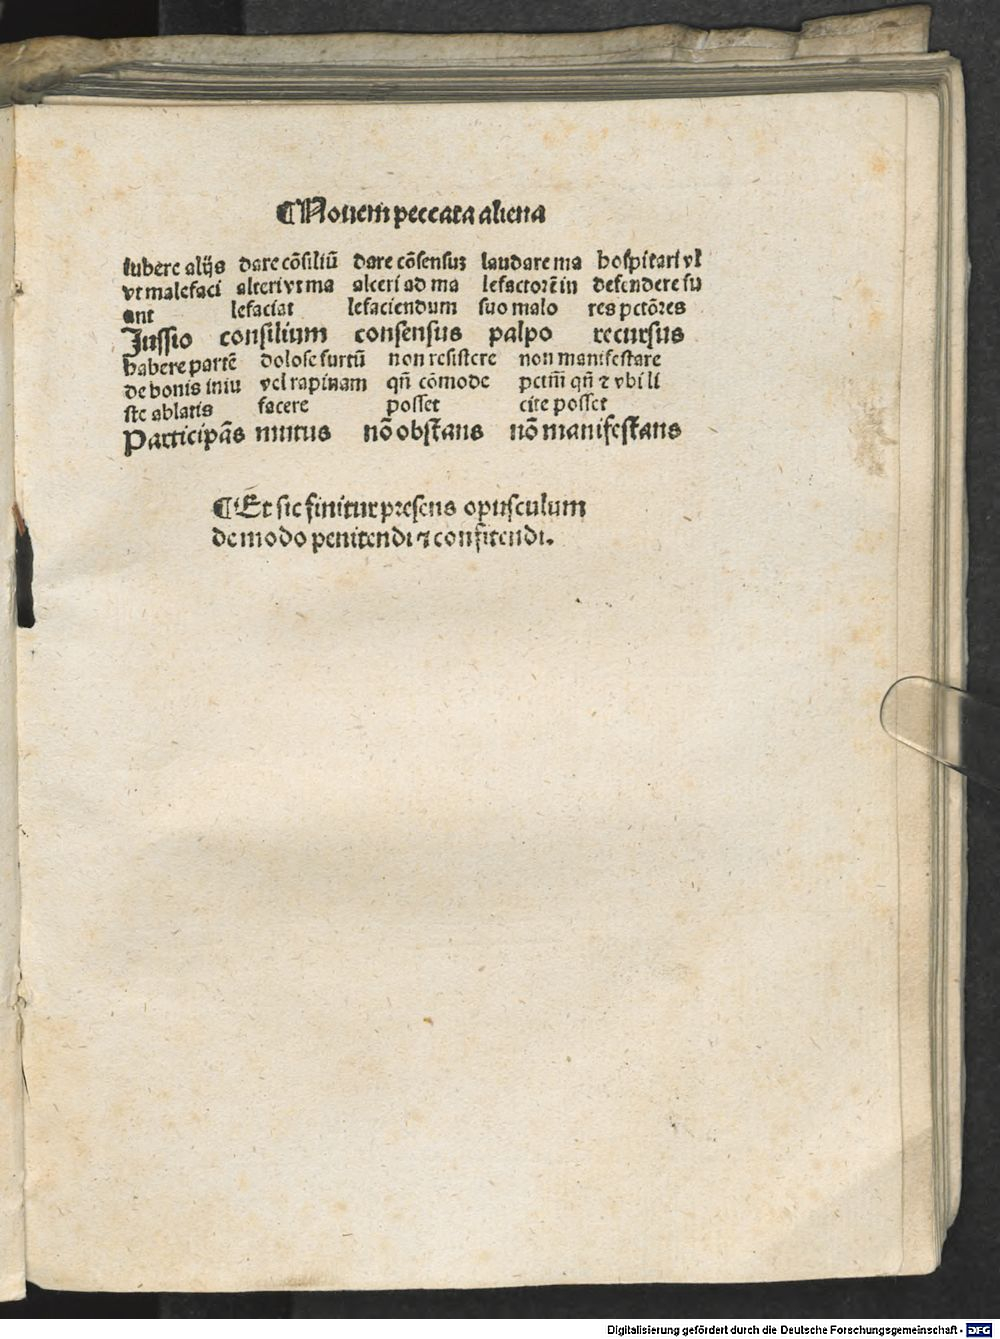 ¶Nouem peccata aliena
Iubere alijs dare cōsiliū dare cōsensuʒ laudare ma hospitari vl
vt malefaci alteri vt ma alteri ad ma lefactorē in defendere su
ant lefaciat lefaciendum suo malo res pctōres
Jussio consilium consensus palpo recursus
habere partē dolose furtū non resistere non manifestare
de bonis iniu vel rapinam qn̄ cōmode pctm̄ qn̄ ⁊ vbi li
ste ablatis facere posset cite posset
Participās nutus nō obstans nō manifestans
¶Et sic finitur presens opusculum
de modo penitendi ⁊ confitendi.
Digitalisierung gefördert durch die Deutsche Forschungsgemeinschaft - DFG